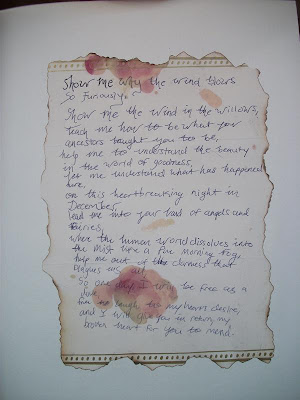 Show me why the wind blows
So furiously
Show me the wind in the willows,
teach me how to be what your
ancestors taught you to be,
help me to understand the beauty
in the world of goodness,
let me understand what has happened
here,
on this heartbreaking night in
December,
lead me into your land of angels and
fairies,
where the human world dissolves into
the mist like a fine morning fog,
help me out of the darkness that
us all
So one day I will be free as a
free to laugh to my hearts desire,
and I will give you in return, my
broken heart for you to mend.